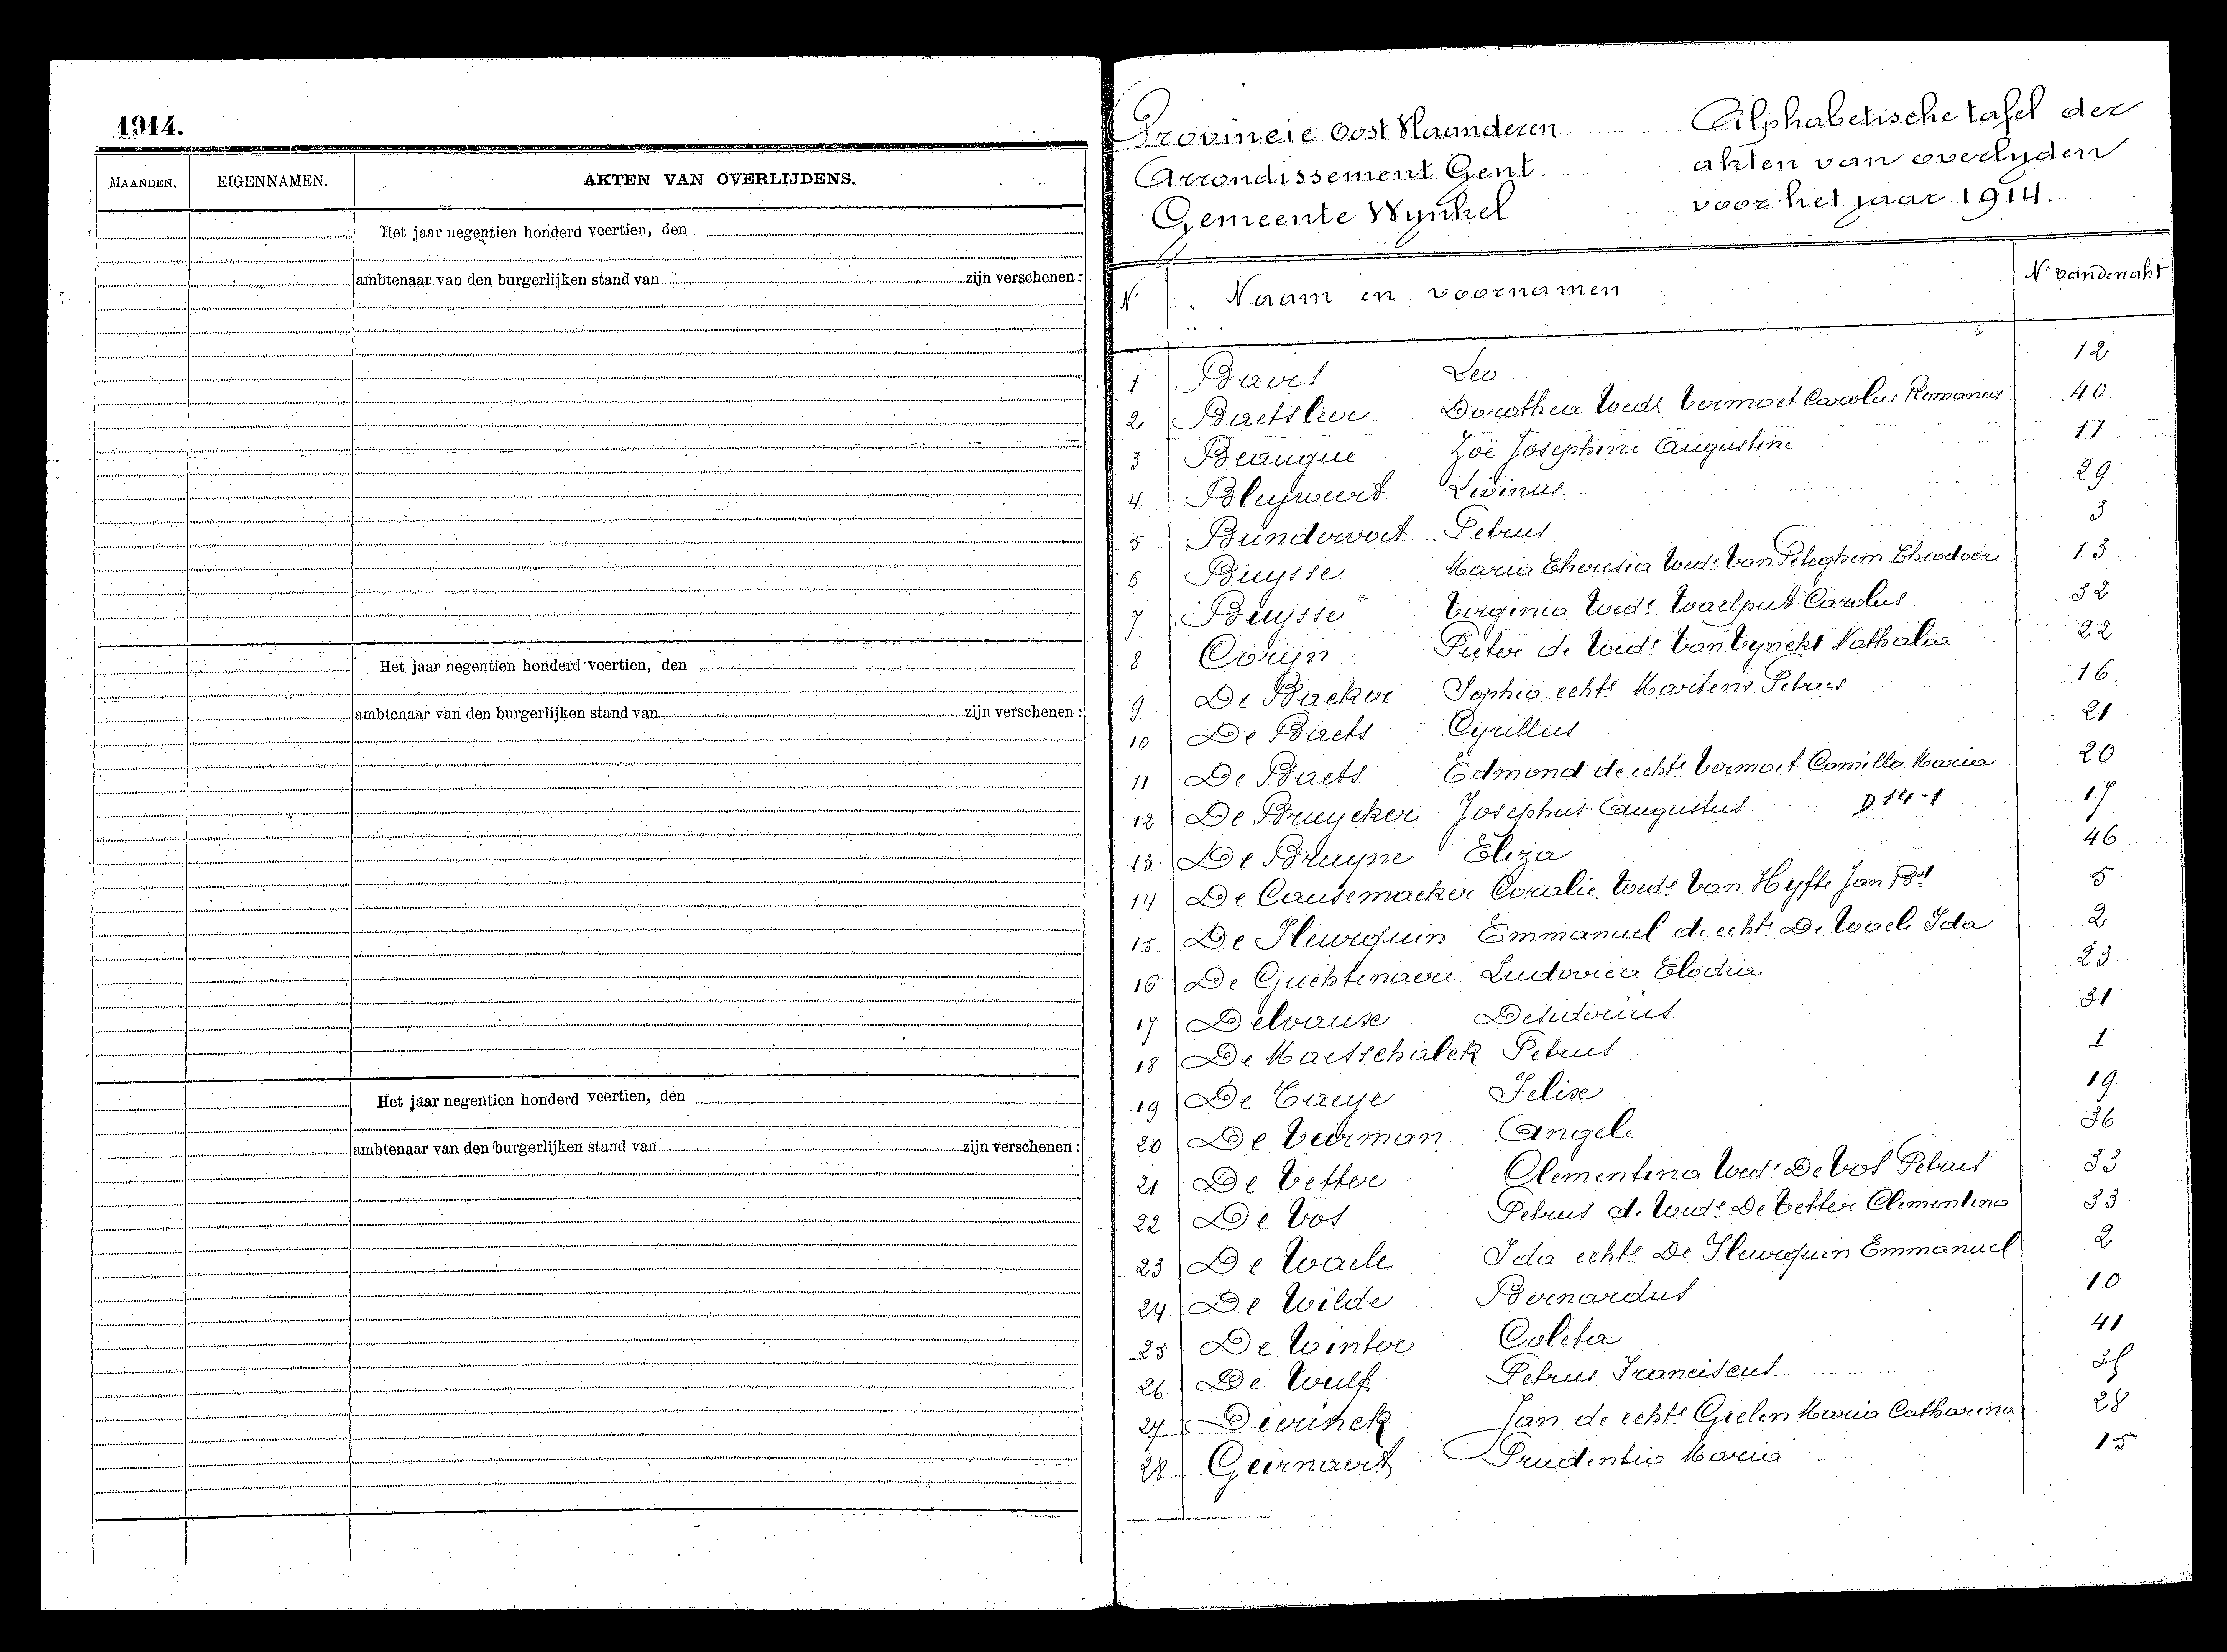 1914.
MAANDEN. EIGENNAMEN. AKTEN VAN OVERLIJDENS.
Het jaar negentien honderd veertien, den
ambtenaar van den burgerlijken stand van zijn verschenen :
Het jaar negentien honderd veertien, den
ambtenaar van den burgerlijken stand van zijn verschenen :
Het jaar negentien honderd veertien, den
ambtenaar van den burgerlijken stand van zijn verschenen :
Provincie Oost Vlaanderen Alphabetische tafel der
Arrondissement Gent akten van overlyden
Gemeente Wynkel voor het jaar 1914.
Nr Naam en voornamen Nr van den akt
1 Leo 12
2 Baetsleer Dorothea Wede Vermoet Carolus Romanus 40
3 Beaugue Zoë Josephine Augustine 11
4 Bleyweert Livinus 29
5 Bundervoet Petrus 3
6 Buysse Maria Theresia Wede Van Peteghem Theodoor 13
7 Buysse Virginia Wede Waelput Carolus 32
8 Coryn Pieter de Wede Van Vynckt Nathalia 22
9 De Backer Sophia echte Martens Petrus 16
10 De Baets Cyrillus 21
11 De Baets Edmond de echte Vermoet Camilla Maria 20
12 De Bruycker Josephus Augustus D 14-1 17
13 De Bruyne Eliza 46
14 De Causemacker Coralie Wede Van Hyfte Jan Bt 5
15 De Fleurquin Emmanuel de echte De Waele Ida 2
16 De Guchtenaere Ludovica Elodia 23
17 Delvaux Desiderius 31
18 De Maesschalck Petrus 1
19 De Taeye Felix 19
20 De Veirman Angele 36
21 De Vetter Clementina Wede De Vos Petrus 33
22 De Vos Petrus de Wede De Vetter Clementina 33
23 De Waele Ida echte De Fleurquin Emmanuel 2
24 De Wilde Bernardus 10
25 De Winter Coleta 41
26 De Wulf Petrus Franciscus
27 Dierinck Jan de echte Geelen Maria Catharina 28
28 Geirnaert Prudentia Maria 15